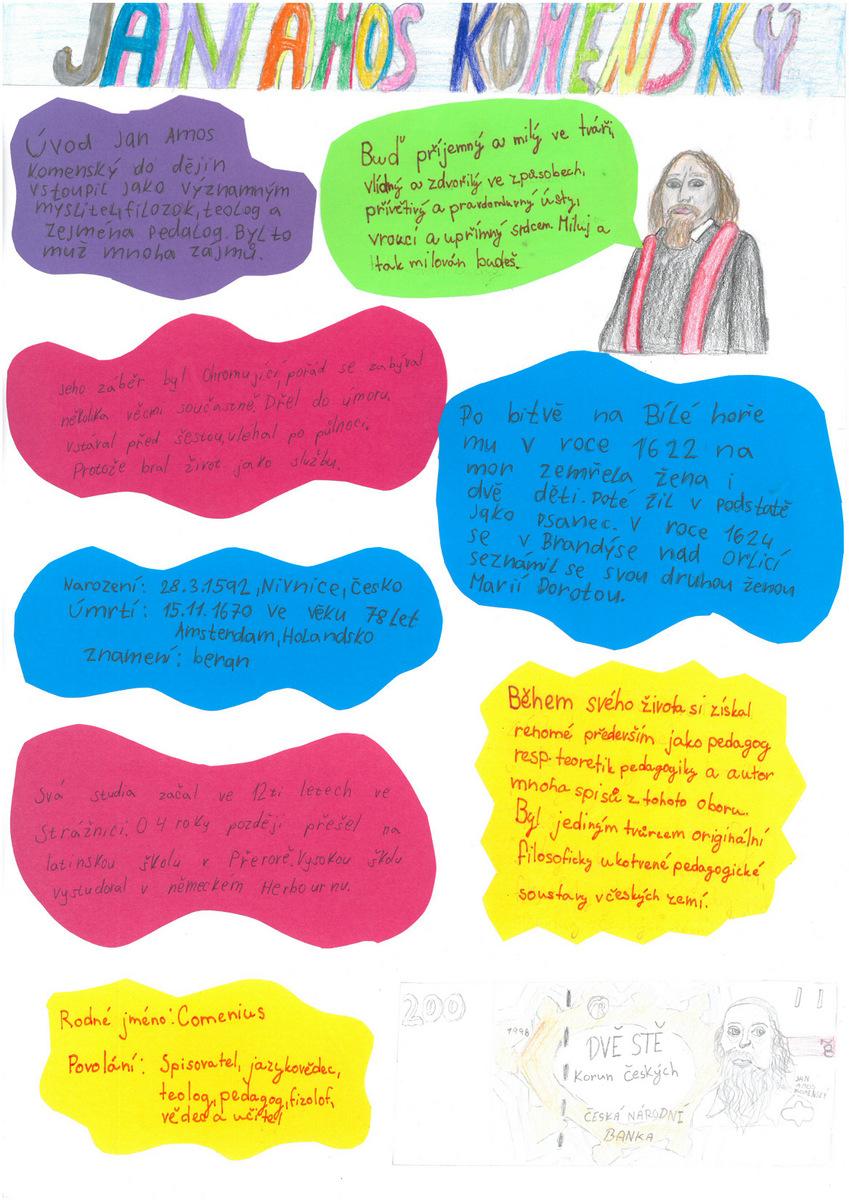 JAN AMOS KOMENSKÝ
Úvod Jan Amos
Komenský do dějin
vstoupil jako významným
myslitel, filozok, teolog a
zejména pedalog. Byl to
muž mnoha zajmů.
Buď příjemný a milý ve tváři,
vlídný a zdvořilý ve způsobech,
přívětivý a pravdomluvný ústy,
vroucí a upřímný srdcem. Miluj a
tak milován budeš.
Jeho záběr byl Ohromující, pořád se zabýval
několika věcmi současně. Dřel do úmoru,
vstával před šestou, ulehal po půlnoci.
Protože bral život jako službu.
Po bitvě na Bílé hoře
mu v roce 1622 na
mor zemřela žena i
dvě děti. Poté žil v podstatě
jako psanec. V roce 1624
se v Brandýse nad Orlicí
seznámil se svou druhou ženou
Marií Dorotou.
Narození: 28.3.1592, Nivnice, Česko
Úmrtí: 15.11.1670 ve věku 78 let
Amsterdam, Holandsko
Znamení: beran
Během svého života si získal
rehomé především jako pedagog
resp. teoretik pedagogiky a autor
mnoha spisů z tohoto oboru.
Byl jediným tvůrcem originální
filosoficky ukotvené pedagogické
soustavy v českých zemí.
Svá studia začal ve 12ti letech ve
Strážnici. O 4 roky později přešel na
latinskou školu v Přerově. Vysokou školu
vystudoral v německém Herbournu.
Rodné jméno: Comenius
Povolání: Spisovatel, jazykovědec,
teolog, pedagog, fizolof,
vědec a učitel
200
1998
DVĚ STĚ
Korun Českých
ČESKÁ NÁRODNÍ
BANKA
JAN
AMOS
KOMENSKÝ